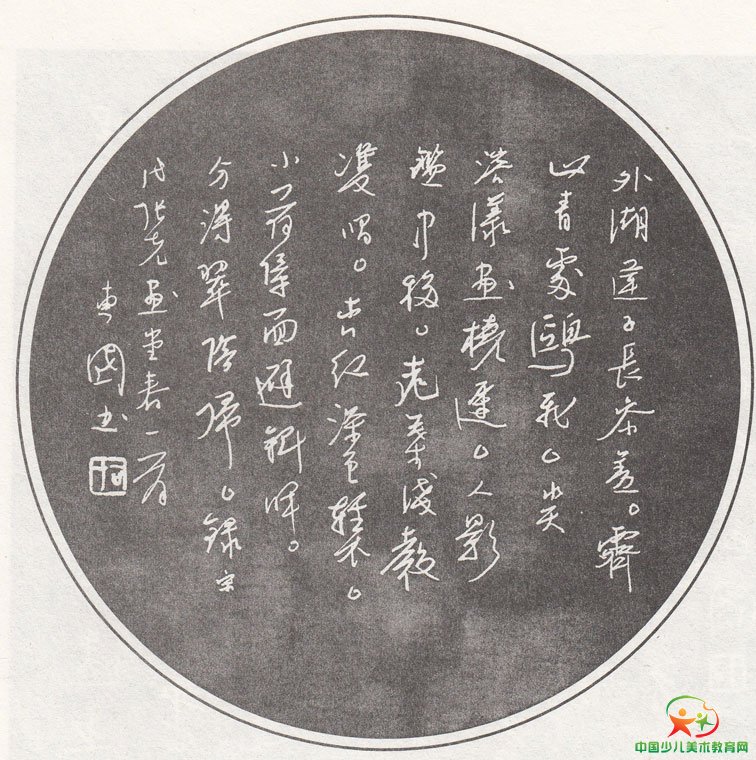 外湖蓮子長參差。霽
山青處鷗飛。水天
溶漾画橈遲。人影
鑑中移。桃葉淺聲
雙唱。杏紅深色輕衣。
小荷障面避斜暉。
分得翠陰歸。錄宋
代張先画堂春一首
國书
中国少儿美术教育网